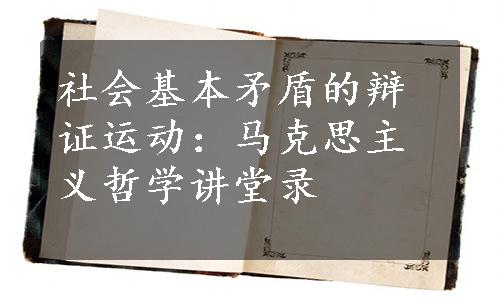 社会基本矛盾的辩
证运动：马克思主
义哲学讲堂录